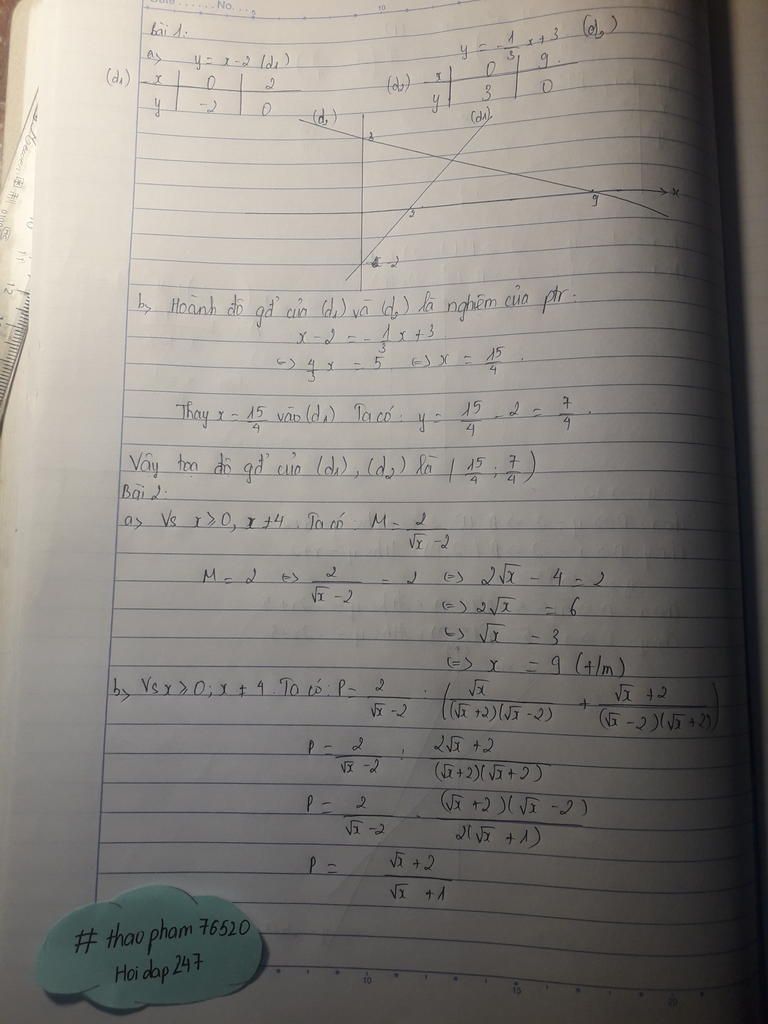 No....
Bài 1:
a> y = x - 2 (d1)
y = -1/3 x + 3 (d2)
(d1) x | 0 | 2
y | -2 | 0
(d2) x | 0 | 9
y | 3 | 0
(d2) (d1)
3
x
9
-2
b> Hoành độ gđ' của (d1) và (d2) là nghiệm của ptr:
x - 2 = -1/3 x + 3
<=> 4/3 x = 5 <=> x = 15/4.
Thay x = 15/4 vào (d1) Ta có: y = 15/4 - 2 = 7/4.
Vậy toạ độ gđ' của (d1), (d2) là (15/4; 7/4)
Bài 2:
a> Vs x ≥ 0, x ≠ 4. Ta có: M = 2/(√x - 2)
M = 2 <=> 2/(√x - 2) = 2 <=> 2√x - 4 = 2
<=> 2√x = 6
<=> √x = 3
<=> x = 9 (t/m)
b> Vs x ≥ 0; x ≠ 4. Ta có: P = 2/(√x - 2) : (√x/((√x + 2)(√x - 2)) + (√x + 2)/((√x - 2)(√x + 2)))
P = 2/(√x - 2) : (2√x + 2)/((√x + 2)(√x + 2))
P = 2/(√x - 2) . ((√x + 2)(√x - 2))/(2(√x + 1))
P = (√x + 2)/(√x + 1)
# thao pham 76520
Hoi dap 247
10 15 20